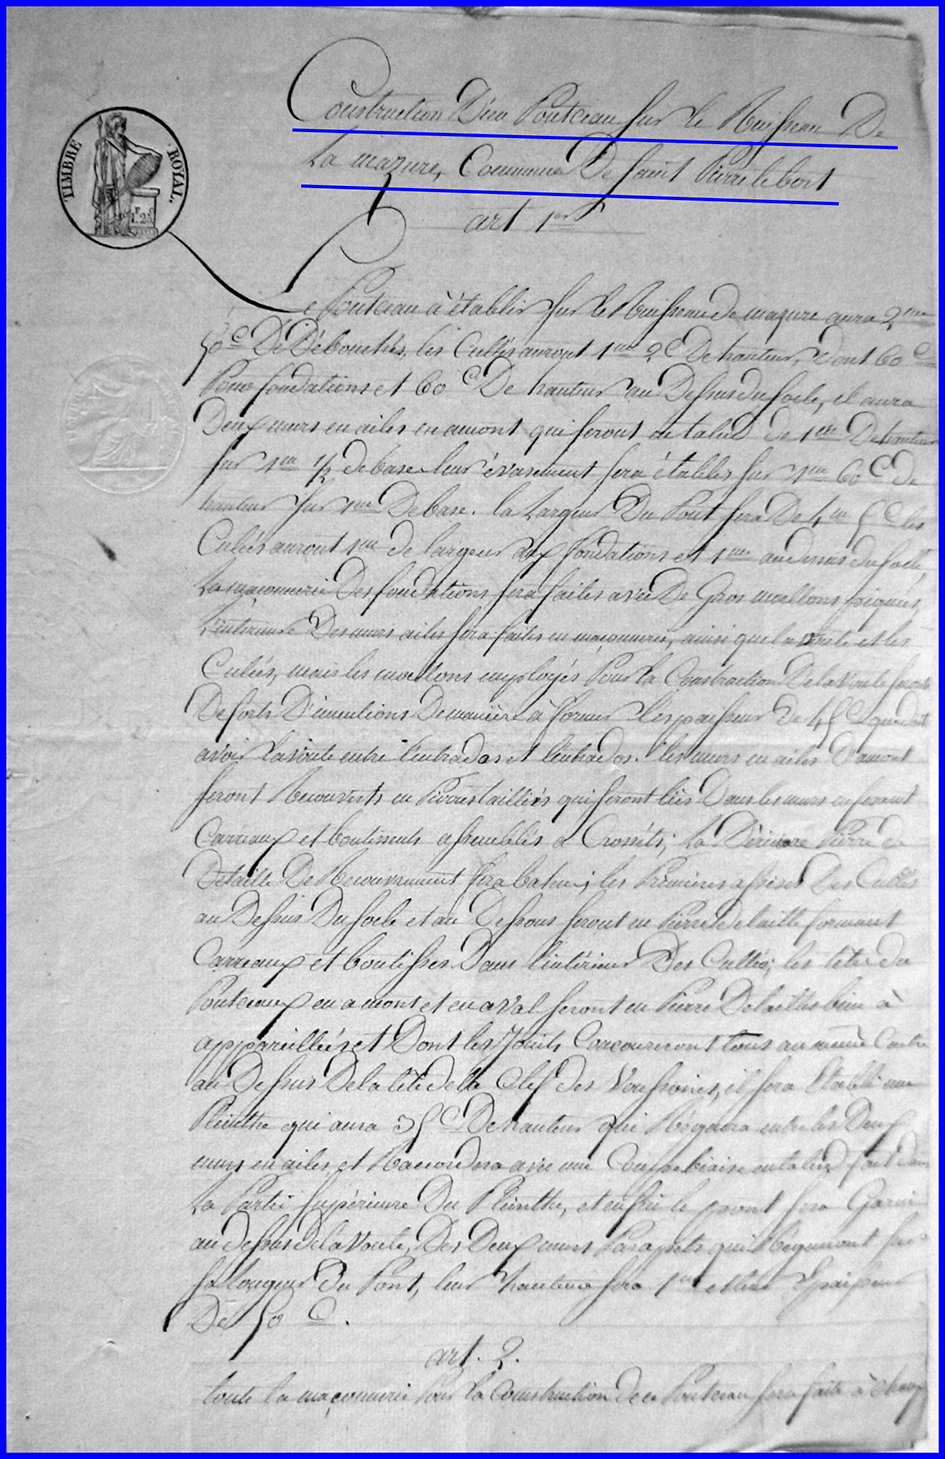 TIMBRE ROYAL
Construction D'un Pontceau sur le Ruisseau De
La mazure, Commune De Saint Pierre le bost
art 1er
Le Pontceau à établir sur le Ruisseau de mazure aura 2me
50c De Débouchés, les Culées auront 1me 2c De hauteur, Dont 60c
Pour fondations et 60c De hauteur au Dessus du socle, il aura
Deux murs en ailes en amont qui seront en talud de 1me De hauteur
sur 1me 1/2 de base leur évasement sera établis sur 1me 60c De
hauteur sur 1me De base. la Largeur Du Pont sera De 4m 5c les
Culées auront 1m de largeur aux fondations et 1me au dessus du socle,
La maçonnerie Des fondations sera faites avec De Gros moellons piqués,
L'intérieur Des murs ailes sera faites en maçonnerie, ainsi que la voute et les
Culées, mais les moellons employés Pour la Construction De la Voute seront
De forts D'imentions De manière à former l'espaisseur de 45c que doit
avoir la voute entre l'intrados et l'extrados. les murs en ailes D'amont
seront Recouverts en Pierres tailliés qui seront liés Dans les murs en formant
Carreaux et boutisses assemblés à Crossets; La Dernière Pierre de
Detaille De Recouvrement sera batue; les Premières assises Des Culées
au Dessus Du socle et au Dessous seront en Pierre De taille formant
Carreaux et boutisses Dans l'intérieur Des Cullés; les têtes du
Pontceaux en amont et en aval seront en Pierre De tailles bien à
appareillées et Dont les Joints Concoureront tous au même Centre
au Dessus De la tête de la Clef des Voussoires, il sera Etabli une
Plinthe qui aura 35c De hauteur qui Régnera entre les Deux
murs en ailes et Racordera avec une Coupe biaise en talud
La Partie supérieure Du Plinthe, et enfin le pont sera Garni
au dessus de la Voute, Des Deux murs Parapets qui Régneront sur
sa longeur Du Pont, leur hauteur sera 1me et leur Epaisseur
De 50 C.
art. 2.
toute la maçonnerie Pour la Construction de ce Pontceau sera faite à chaux